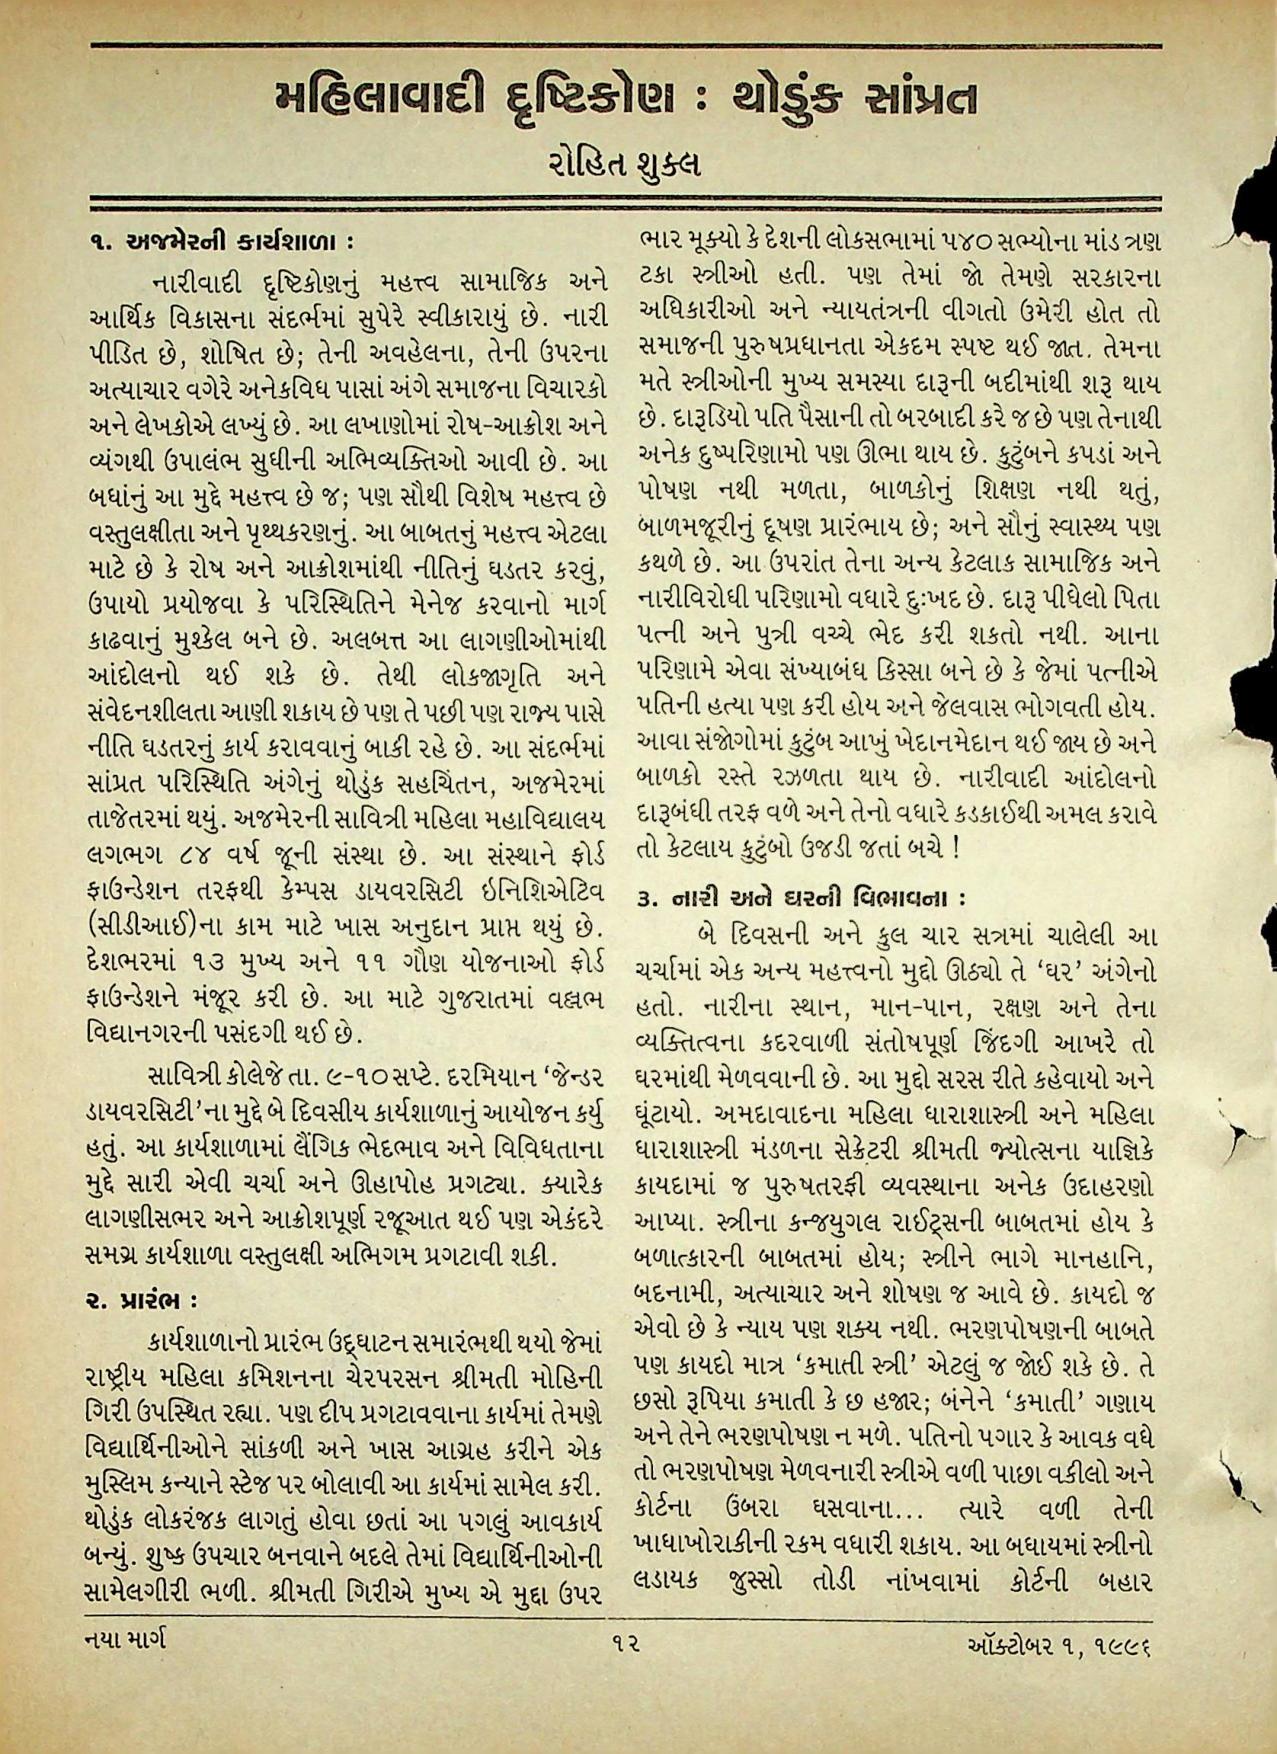 મહિલાવાદી દૃષ્ટિકોણ : થોડુંક સાંપ્રત
રોહિત શુક્લ
૧. અજમેરની કાર્યશાળા :
નારીવાદી દૃષ્ટિકોણનું મહત્ત્વ સામાજિક અને
આર્થિક વિકાસના સંદર્ભમાં સુપેરે સ્વીકારાયું છે. નારી
પીડિત છે, શોષિત છે; તેની અવહેલના, તેની ઉપરના
અત્યાચાર વગેરે અનેકવિધ પાસાં અંગે સમાજના વિચારકો
અને લેખકોએ લખ્યું છે. આ લખાણોમાં રોષ-આક્રોશ અને
વ્યંગથી ઉપાલંભ સુધીની અભિવ્યક્તિઓ આવી છે. આ
બધાંનું આ મુદ્દે મહત્ત્વ છે જ; પણ સૌથી વિશેષ મહત્ત્વ છે
વસ્તુલક્ષીતા અને પૃથ્થકરણનું. આ બાબતનું મહત્ત્વ એટલા
માટે છે કે રોષ અને આક્રોશમાંથી નીતિનું ઘડતર કરવું,
ઉપાયો પ્રયોજવા કે પરિસ્થિતિને મેનેજ કરવાનો માર્ગ
કાઢવાનું મુશ્કેલ બને છે. અલબત્ત આ લાગણીઓમાંથી
આંદોલનો થઈ શકે છે. તેથી લોકજાગૃતિ અને
સંવેદનશીલતા આણી શકાય છે પણ તે પછી પણ રાજ્ય પાસે
નીતિ ઘડતરનું કાર્ય કરાવવાનું બાકી રહે છે. આ સંદર્ભમાં
સાંપ્રત પરિસ્થિતિ અંગેનું થોડુંક સહચિંતન, અજમેરમાં
તાજેતરમાં થયું. અજમેરની સાવિત્રી મહિલા મહાવિદ્યાલય
લગભગ ૮૪ વર્ષ જૂની સંસ્થા છે. આ સંસ્થાને ફોર્ડ
ફાઉન્ડેશન તરફથી કેમ્પસ ડાયવરસિટી ઇનિશિએટિવ
(સીડીઆઈ)ના કામ માટે ખાસ અનુદાન પ્રાપ્ત થયું છે.
દેશભરમાં ૧૩ મુખ્ય અને ૧૧ ગૌણ યોજનાઓ ફોર્ડ
ફાઉન્ડેશને મંજૂર કરી છે. આ માટે ગુજરાતમાં વલ્લભ
વિદ્યાનગરની પસંદગી થઈ છે.
સાવિત્રી કોલેજે તા. ૯-૧૦ સપ્ટે. દરમિયાન ‘જેન્ડર
ડાયવરસિટી’ના મુદ્દે બે દિવસીય કાર્યશાળાનું આયોજન કર્યુ
હતું. આ કાર્યશાળામાં લૈંગિક ભેદભાવ અને વિવિધતાના
મુદ્દે સારી એવી ચર્ચા અને ઊહાપોહ પ્રગટ્યા. ક્યારેક
લાગણીસભર અને આક્રોશપૂર્ણ રજૂઆત થઈ પણ એકંદરે
સમગ્ર કાર્યશાળા વસ્તુલક્ષી અભિગમ પ્રગટાવી શકી.
૨. પ્રારંભ :
કાર્યશાળાનો પ્રારંભ ઉદ્ઘાટન સમારંભથી થયો જેમાં
રાષ્ટ્રીય મહિલા કમિશનના ચેરપરસન શ્રીમતી મોહિની
ગિરી ઉપસ્થિત રહ્યા. પણ દીપ પ્રગટાવવાના કાર્યમાં તેમણે
વિદ્યાર્થિનીઓને સાંકળી અને ખાસ આગ્રહ કરીને એક
મુસ્લિમ કન્યાને સ્ટેજ પર બોલાવી આ કાર્યમાં સામેલ કરી.
થોડુંક લોકરંજક લાગતું હોવા છતાં આ પગલું આવકાર્ય
બન્યું. શુષ્ક ઉપચાર બનવાને બદલે તેમાં વિદ્યાર્થિનીઓની
સામેલગીરી ભળી. શ્રીમતી ગિરીએ મુખ્ય એ મુદ્દા ઉપર
ભાર મૂક્યો કે દેશની લોકસભામાં ૫૪૦ સભ્યોના માંડ ત્રણ
ટકા સ્ત્રીઓ હતી. પણ તેમાં જો તેમણે સરકારના
અધિકારીઓ અને ન્યાયતંત્રની વીગતો ઉમેરી હોત તો
સમાજની પુરુષપ્રધાનતા એકદમ સ્પષ્ટ થઈ જાત. તેમના
મતે સ્ત્રીઓની મુખ્ય સમસ્યા દારૂની બદીમાંથી શરૂ થાય
છે. દારૂડિયો પતિ પૈસાની તો બરબાદી કરે જ છે પણ તેનાથી
અનેક દુષ્પરિણામો પણ ઊભા થાય છે. કુટુંબને કપડાં અને
પોષણ નથી મળતા, બાળકોનું શિક્ષણ નથી થતું,
બાળમજૂરીનું દૂષણ પ્રારંભાય છે; અને સૌનું સ્વાસ્થ્ય પણ
કથળે છે. આ ઉપરાંત તેના અન્ય કેટલાક સામાજિક અને
નારીવિરોધી પરિણામો વધારે દુઃખદ છે. દારૂ પીધેલો પિતા
પત્ની અને પુત્રી વચ્ચે ભેદ કરી શકતો નથી. આના
પરિણામે એવા સંખ્યાબંધ કિસ્સા બને છે કે જેમાં પત્નીએ
પતિની હત્યા પણ કરી હોય અને જેલવાસ ભોગવતી હોય.
આવા સંજોગોમાં કુટુંબ આખું ખેદાનમેદાન થઈ જાય છે અને
બાળકો રસ્તે રઝળતા થાય છે. નારીવાદી આંદોલનો
દારૂબંધી તરફ વળે અને તેનો વધારે કડકાઈથી અમલ કરાવે
તો કેટલાય કુટુંબો ઉજડી જતાં બચે !
૩. નારી અને ઘરની વિભાવના :
બે દિવસની અને કુલ ચાર સત્રમાં ચાલેલી આ
ચર્ચામાં એક અન્ય મહત્ત્વનો મુદ્દો ઊઠ્યો તે ‘ઘર’ અંગેનો
હતો. નારીના સ્થાન, માન-પાન, રક્ષણ અને તેના
વ્યક્તિત્વના કદરવાળી સંતોષપૂર્ણ જિંદગી આખરે તો
ઘરમાંથી મેળવવાની છે. આ મુદ્દો સરસ રીતે કહેવાયો અને
ઘૂંટાયો. અમદાવાદના મહિલા ધારાશાસ્ત્રી અને મહિલા
ધારાશાસ્ત્રી મંડળના સેક્રેટરી શ્રીમતી જ્યોત્સના યાજ્ઞિકે
કાયદામાં જ પુરુષતરફી વ્યવસ્થાના અનેક ઉદાહરણો
આપ્યા. સ્ત્રીના કન્જયુગલ રાઈટ્સની બાબતમાં હોય કે
બળાત્કારની બાબતમાં હોય; સ્ત્રીને ભાગે માનહાનિ,
બદનામી, અત્યાચાર અને શોષણ જ આવે છે. કાયદો જ
એવો છે કે ન્યાય પણ શક્ય નથી. ભરણપોષણની બાબતે
પણ કાયદો માત્ર ‘કમાતી સ્ત્રી’ એટલું જ જોઈ શકે છે. તે
છસો રૂપિયા કમાતી કે છ હજાર; બંનેને ‘કમાતી’ ગણાય
અને તેને ભરણપોષણ ન મળે. પતિનો પગાર કે આવક વધે
તો ભરણપોષણ મેળવનારી સ્ત્રીએ વળી પાછા વકીલો અને
કોર્ટના ઉંબરા ઘસવાના... ત્યારે વળી તેની
ખાધાખોરાકીની રકમ વધારી શકાય. આ બધાયમાં સ્ત્રીનો
લડાયક જુસ્સો તોડી નાંખવામાં કોર્ટની બહાર
નયા માર્ગ
૧૨
ઑક્ટોબર ૧, ૧૯૯૬